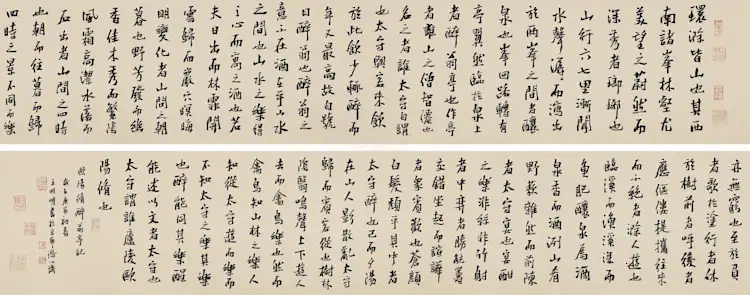 環滁皆山也其西
南諸峯林壑尤
美望之蔚然而
深秀者瑯琊也
山行六七里漸聞
水聲潺潺而瀉出
於兩峯之間者釀
泉也峯回路轉有
亭翼然臨於泉上
者醉翁亭也作亭
者誰山之僧智僊也
名之者誰太守自謂
也太守與客来飲
於此飲少輒醉而
年又最高故自號
曰醉翁也醉翁之
意不在酒在乎山水
之間也山水之樂得
之心而寓之酒也若
夫日出而林霏開
雲歸而巖穴暝晦
明變化者山間之朝
暮也野芳發而幽
香佳木秀而繁陰
風霜高潔水落而
石出者山間之四時
也朝而往暮而歸
四時之景不同而樂
亦無窮也至於負
者歌於塗行者休
於樹前者呼後者
應傴僂提攜往来
而不絕者滁人遊也
臨溪而漁溪深而
魚肥釀泉為酒
泉香而酒洌山肴
野蔌雜然而前陳
者太守宴也宴酣
之樂非絲非竹射
者中弈者勝觥籌
交錯坐起而諠譁
者衆賓歡也蒼顏
白髮頹乎其中者
太守醉也已而夕陽
在山人影散亂太守
歸而賓客從也樹林
陰翳鳴聲上下遊人
去而禽鳥樂也然而
禽鳥知山林之樂人
知從太守遊而樂而
不知太守之樂其樂
也醉能同其樂醒
能述以文者太守也
太守謂誰廬陵歐
陽脩也
歐陽脩醉翁亭記